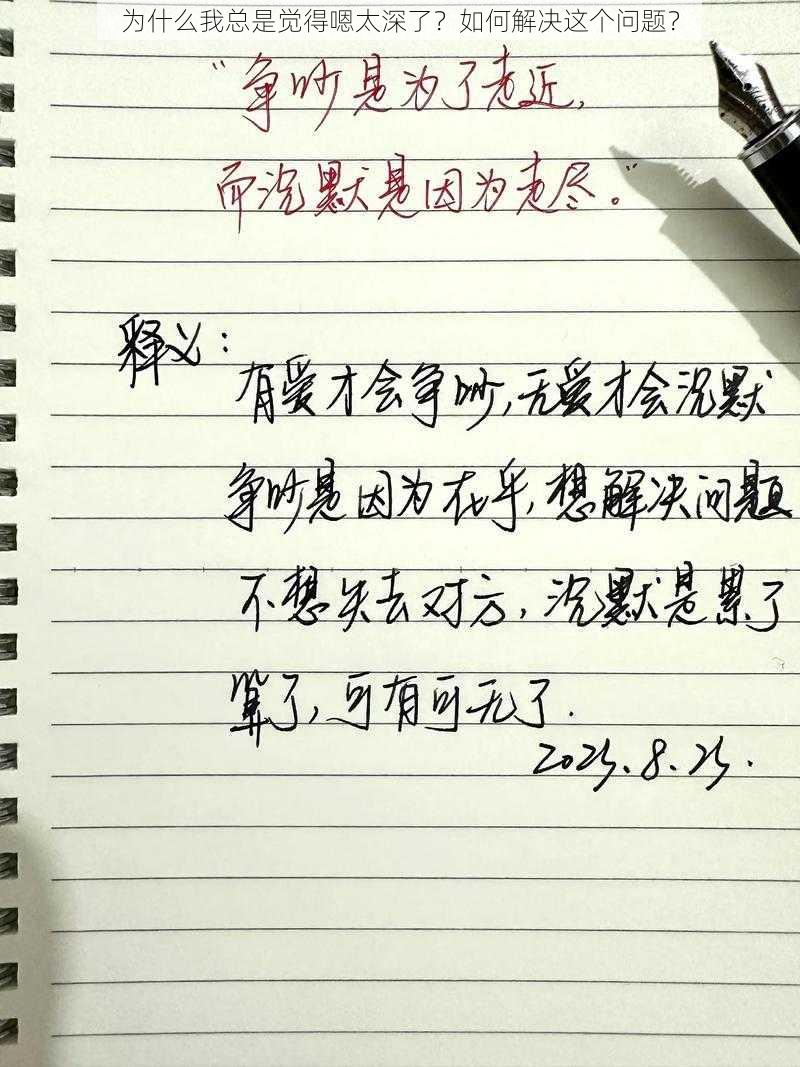 为什么我总是觉得嗯太深了？如何解决这个问题？
“争吵是为了走近，
而沉默是因为走尽。”
释义：
有爱才会争吵，无爱才会沉默
争吵是因为在乎，想解决问题
不想失去对方，沉默是累了
算了，可有可无了.
2025.8.25.